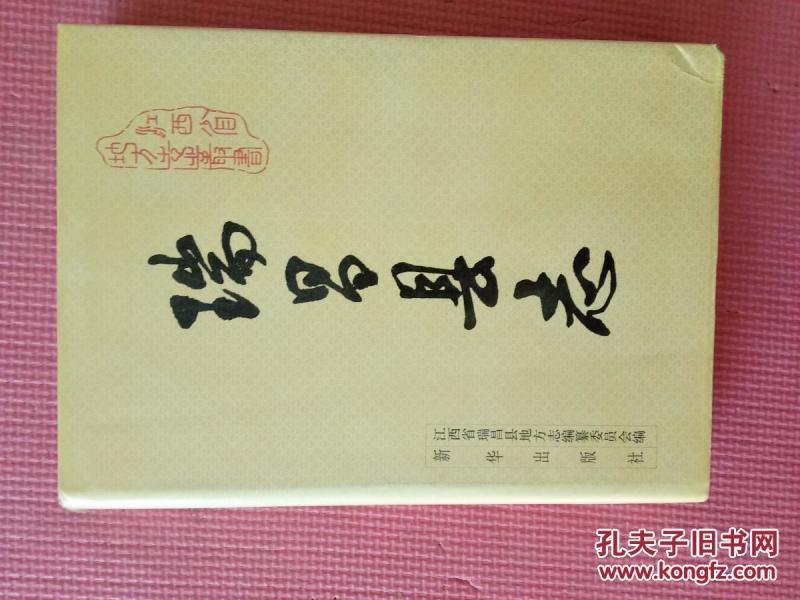 江西省
地方志丛书
瑞昌县志
江西省瑞昌县地方志编纂委员会编
新华出版社
孔夫子旧书网
www.kongfz.com